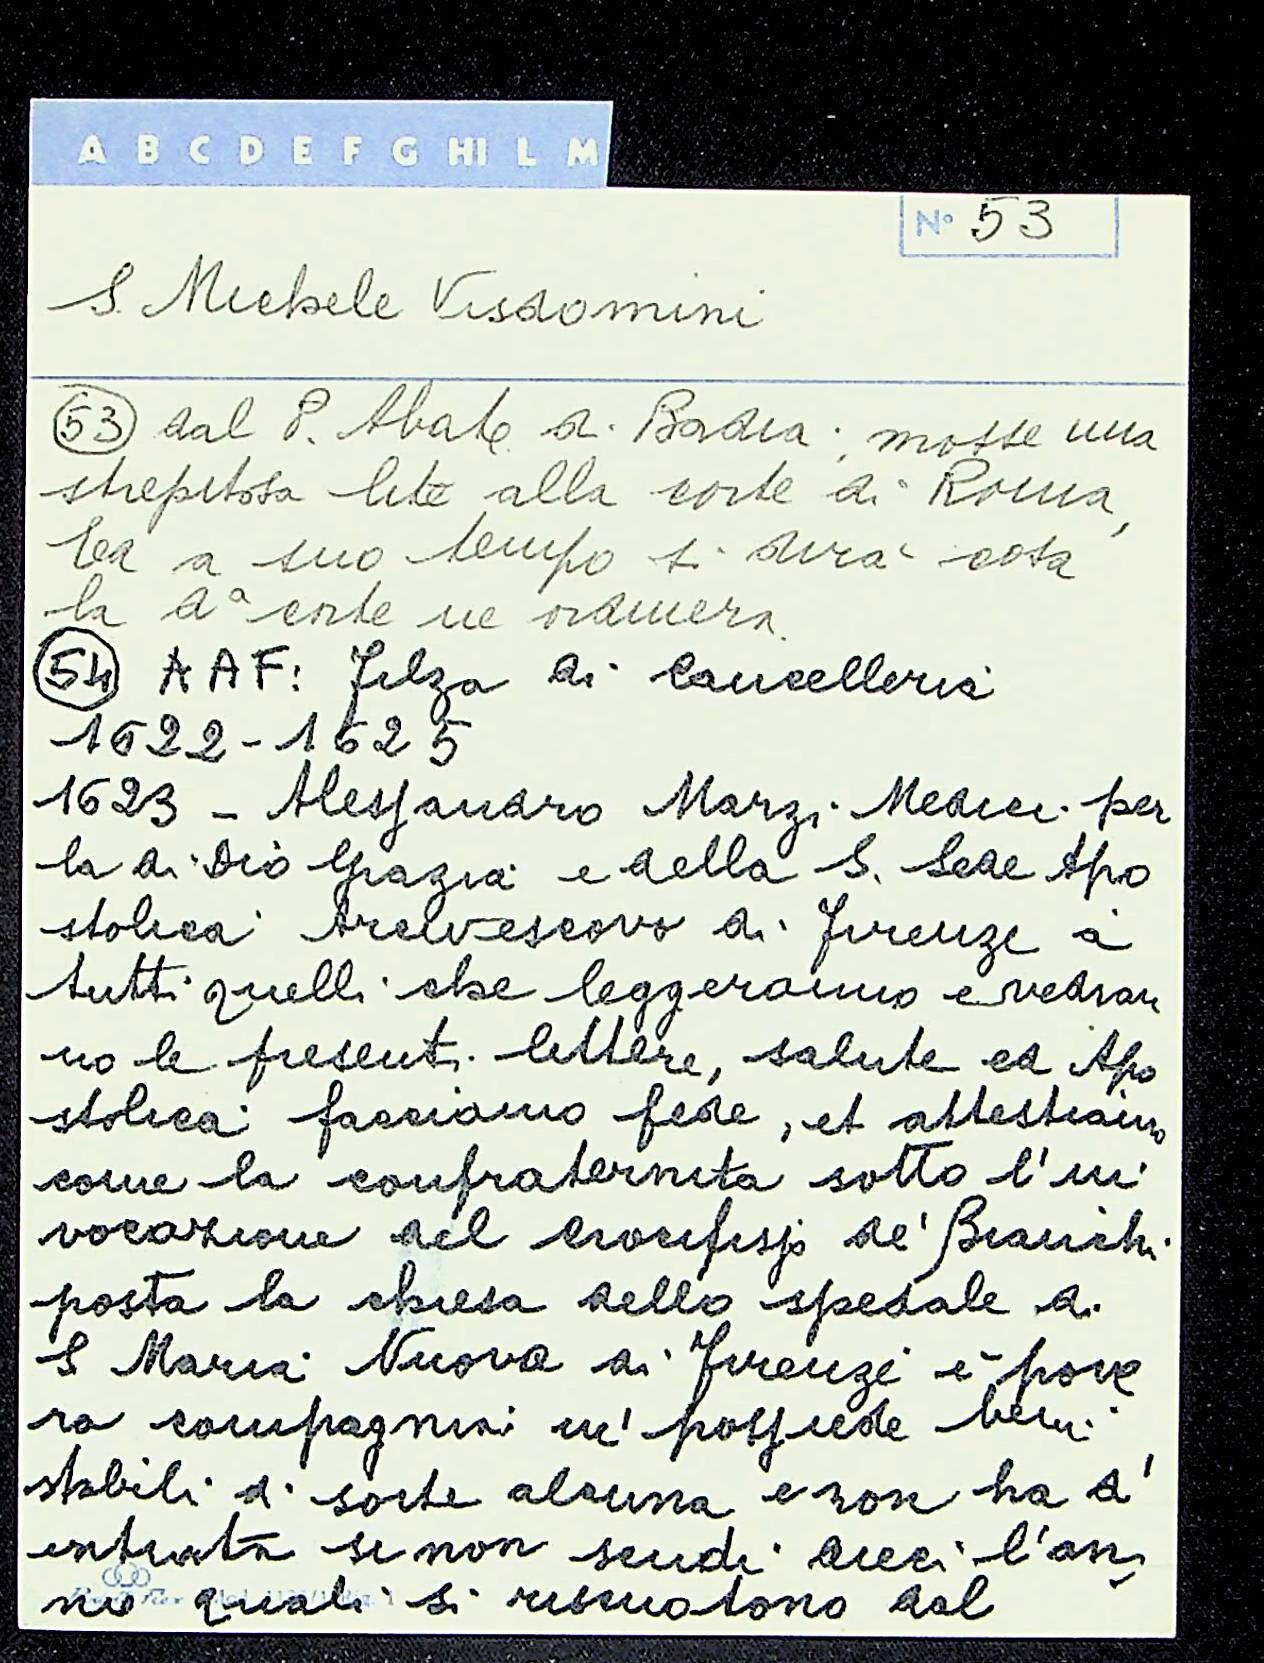 A B C D E F G HI L M
N° 53
S. Michele Visdomini
53 dal P. Abate di Badia; mosse una
strepitosa lite alla corte di Roma,
ed a suo tempo si dirà cosa
la d.ª corte ne ordinerà.
54 AAF: Filza di Cancelleria
1622-1625
1623 - Alessandro Marzi Medici per
la di Dio grazia e della S. Sede Apo
stolica Arcivescovo di Firenze à
tutti quelli che leggeranno e vedran
no le presenti lettere, salute ed Apo
stolica facciamo fede, et attestiamo
come la confraternita sotto l'in
vocazione del Crocifisso de' Bianchi
posta la chiesa dello spedale di
S Maria Nuova di Firenze è pove
ra compagnia ne' possiede beni
stabili di sorte alcuna e non ha d'
entrata se non scudi dieci l'an
no quali si riscuotono dal